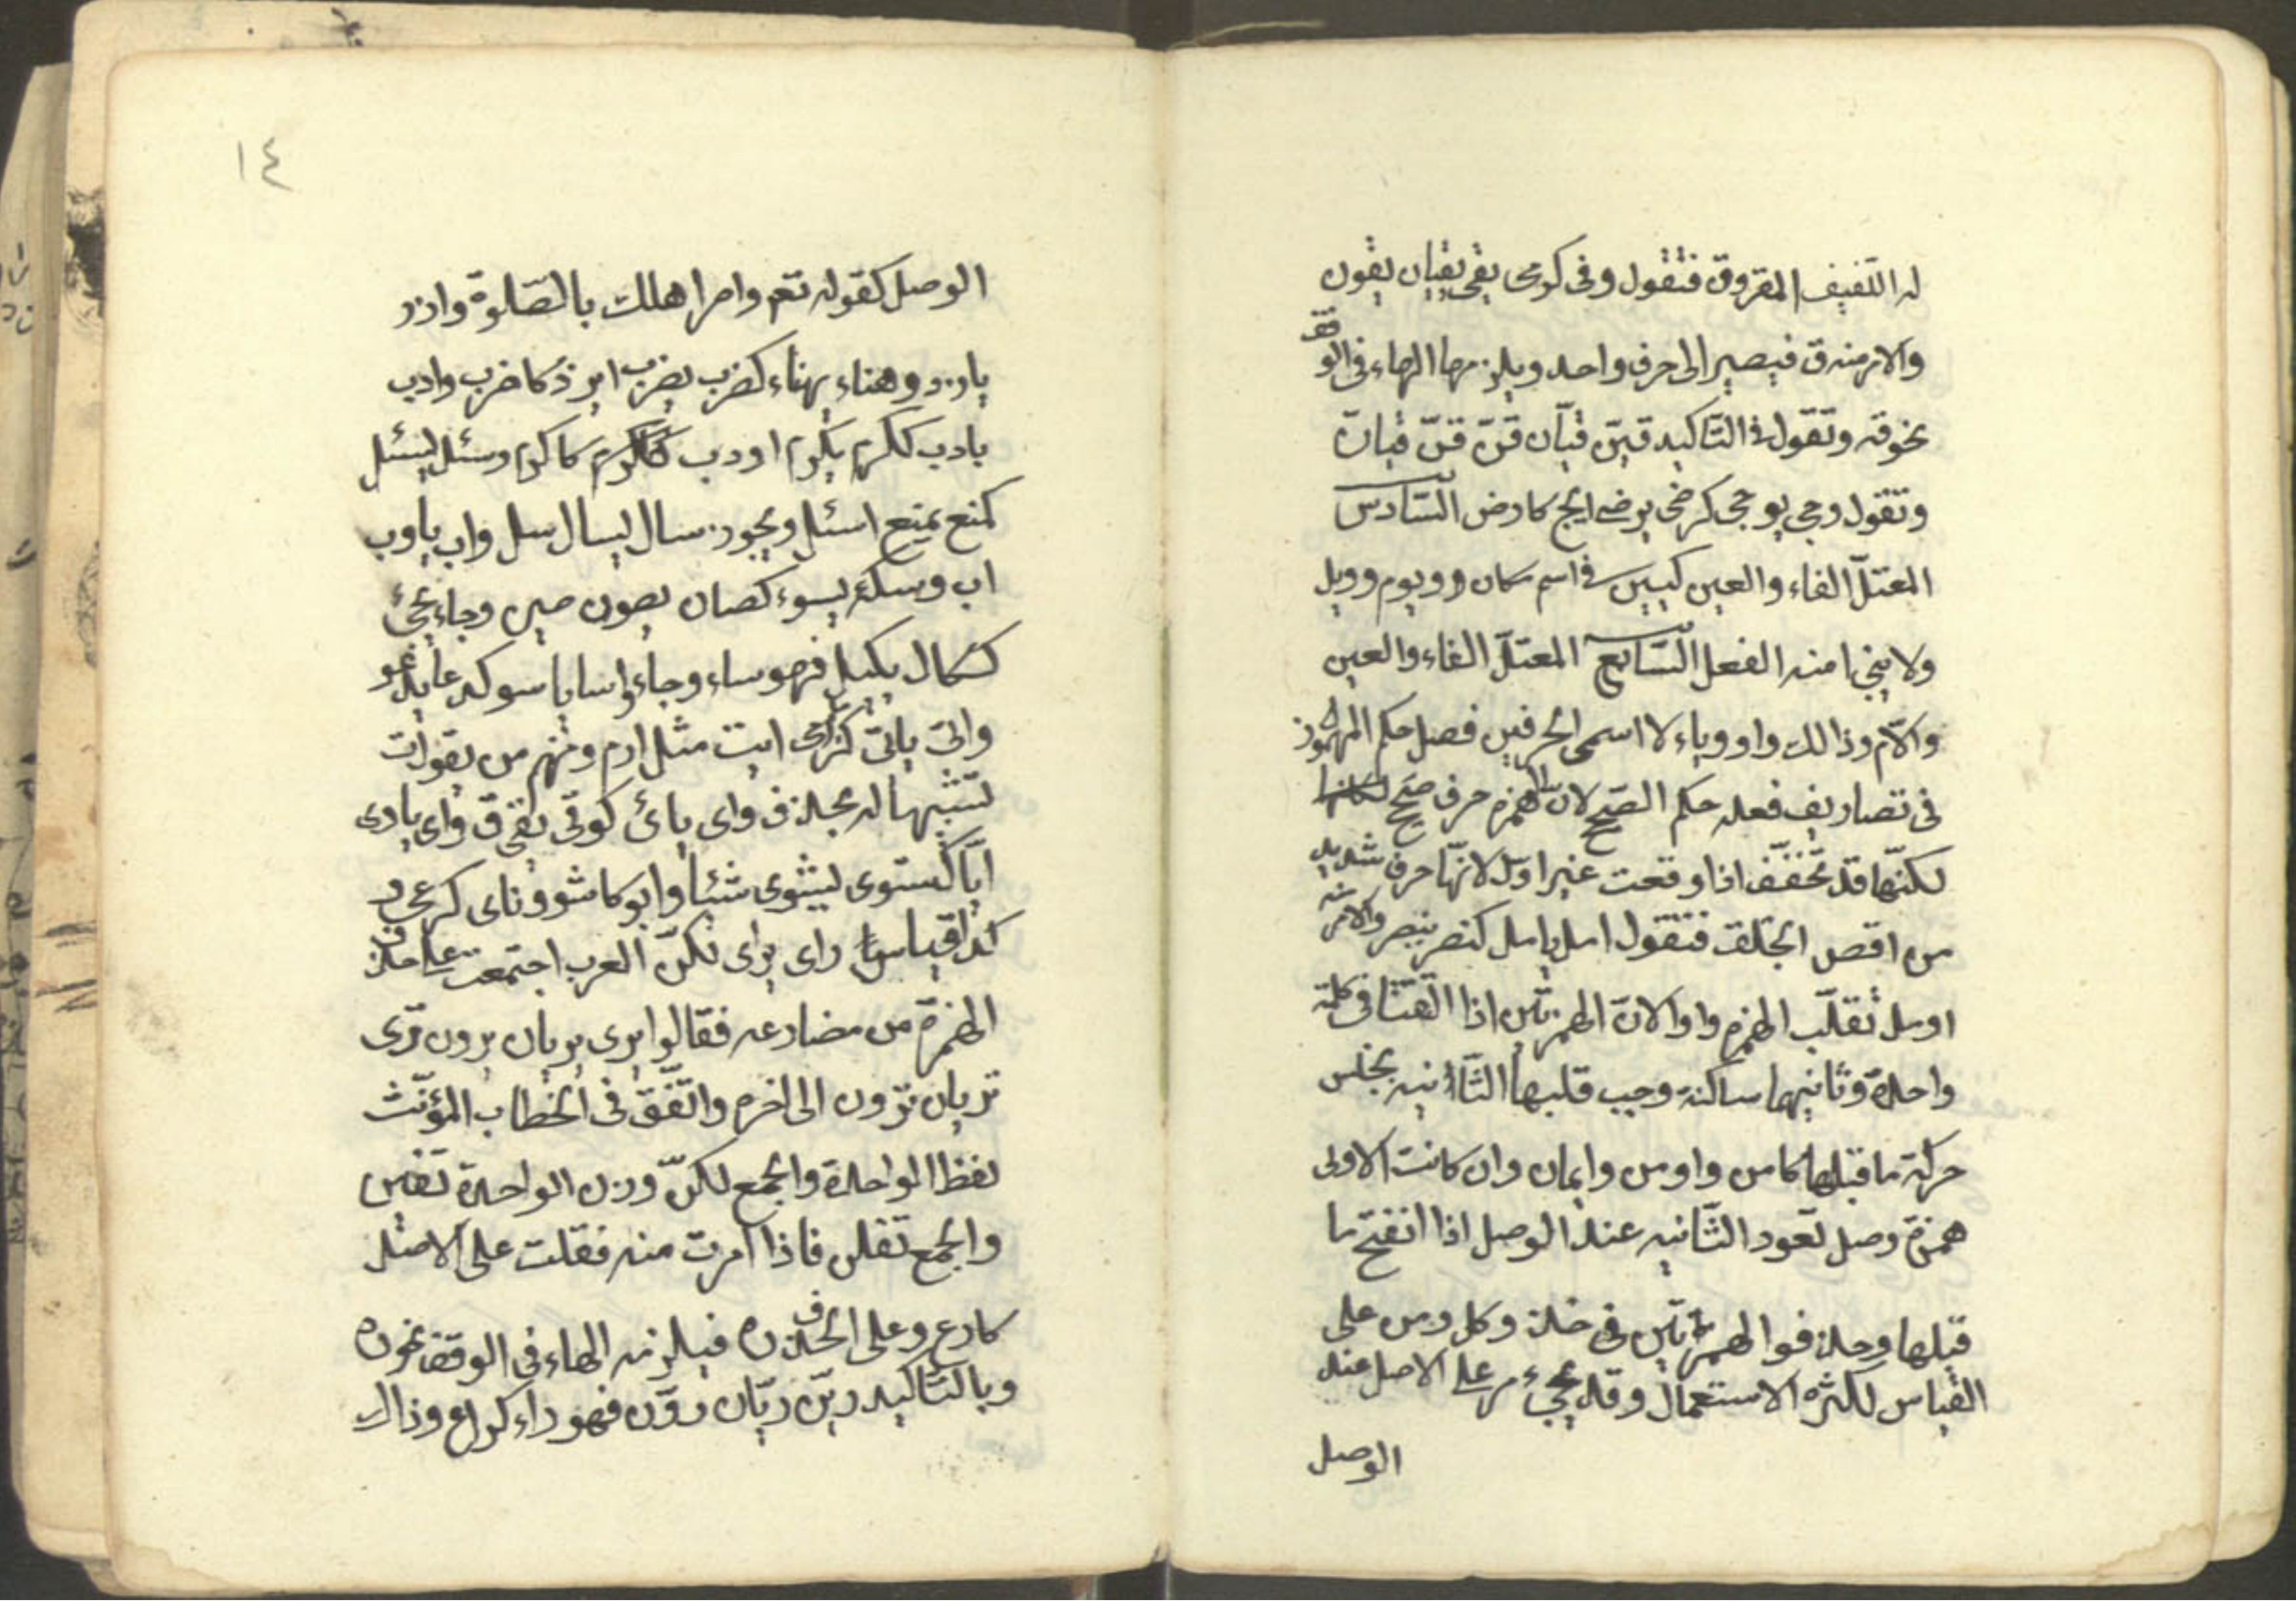 له اللّفيف المقروق فتقول وقى كرمى يقى يقيان يقون
والامر منه ق فيصير الى حرف واحد ويلزمها الهاء فى الوقف
نحو قه وتقول فى التّاكيد قينّ قيانّ قنّ قنّ قيانّ
وتقول وجى يوجى كرضى يرضى ايج كارض السّادس
المعتلّ الفاء والعين كيين فى اسم مكان ويوم وويل
ولا يبنى منه الفعل السّابع المعتلّ الفاء والعين
والّام وذالك واو وياء لاسمى الحرفين فصل حكم المهموز
فى تصاريف فعله حكم الصّحيح لانّ الهمزة حرف صحيح
لكنّها قد تخفّف اذا وقعت غير اوّل لانّها حرف شديد
من اقصى الحلق فتقول امل يامل كنصر ينصر والامر منه
اومل تقلّب الهمزة واوا لانّ الهمزتين اذا التقتا فى كلمة
واحدة وثانيهما ساكنة وجب قلبها الثّانيه بجنس
حركة ما قبلها كامن واومن وايمان وان كانت الاولى
همزة وصل تعود الثّانيه عند الوصل اذا انفتح ما
قبلها وحذفوا الهمزتين فى خذ وكل ومن على
القياس لكثرة الاستعمال وقد يجىء مر على الاصل عند
الوصل
١٤
الوصل كقوله تعم وامر اهلك بالصّلوة وازر
يازر وهناء يهناء كضرب يضرب ايزر كاضرب وادب
يادب ككرم يكرم اودب كاكرم وسئل يسئل
كمنع يمنع اسئل ويجوز سال يسال سل واب ياوب
اب وساء يسوء كصان يصون صن وجاء يجئ
ككال يكيل فهو ساء وجاء واسا ياسو كدعا يدعو
واتى ياتى كرمى ايت مثل ارم ومنهم من يقول ت
تشبيها له بخذ واى يائ كوقى يقى ق واى ياوى
ايّا كشوى يشوى شيّا وايو كاشو وناى كرعى و
كذا قياس راى يراى لكنّ العرب اجتمعت على حذف
الهمزة من مضارعه فقالوا يرى يريان يرون ترى
تريان ترون الى اخره واتّفق فى الخطاب المؤنّث
لفظ الواحدة والجمع لكنّ وزن الواحدة تفين
والجمع تفلن فاذا امرت منه فقلت على الاصل
كارع وعلى الحذف ره فيلزمه الهاء فى الوقف نحو ره
وبالتّاكيد رينّ ريانّ روّن فهو راء كراع وذالك